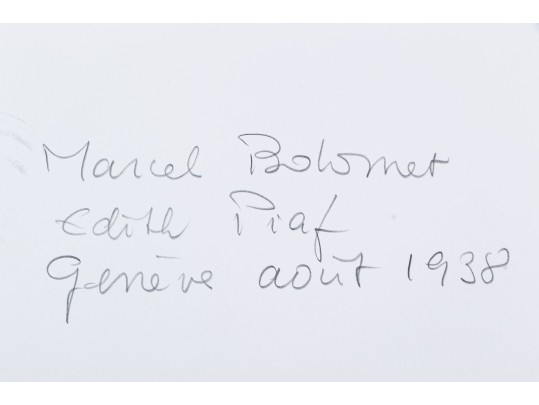 Marcel Bolomet
Edith Piaf
Genève août 1938